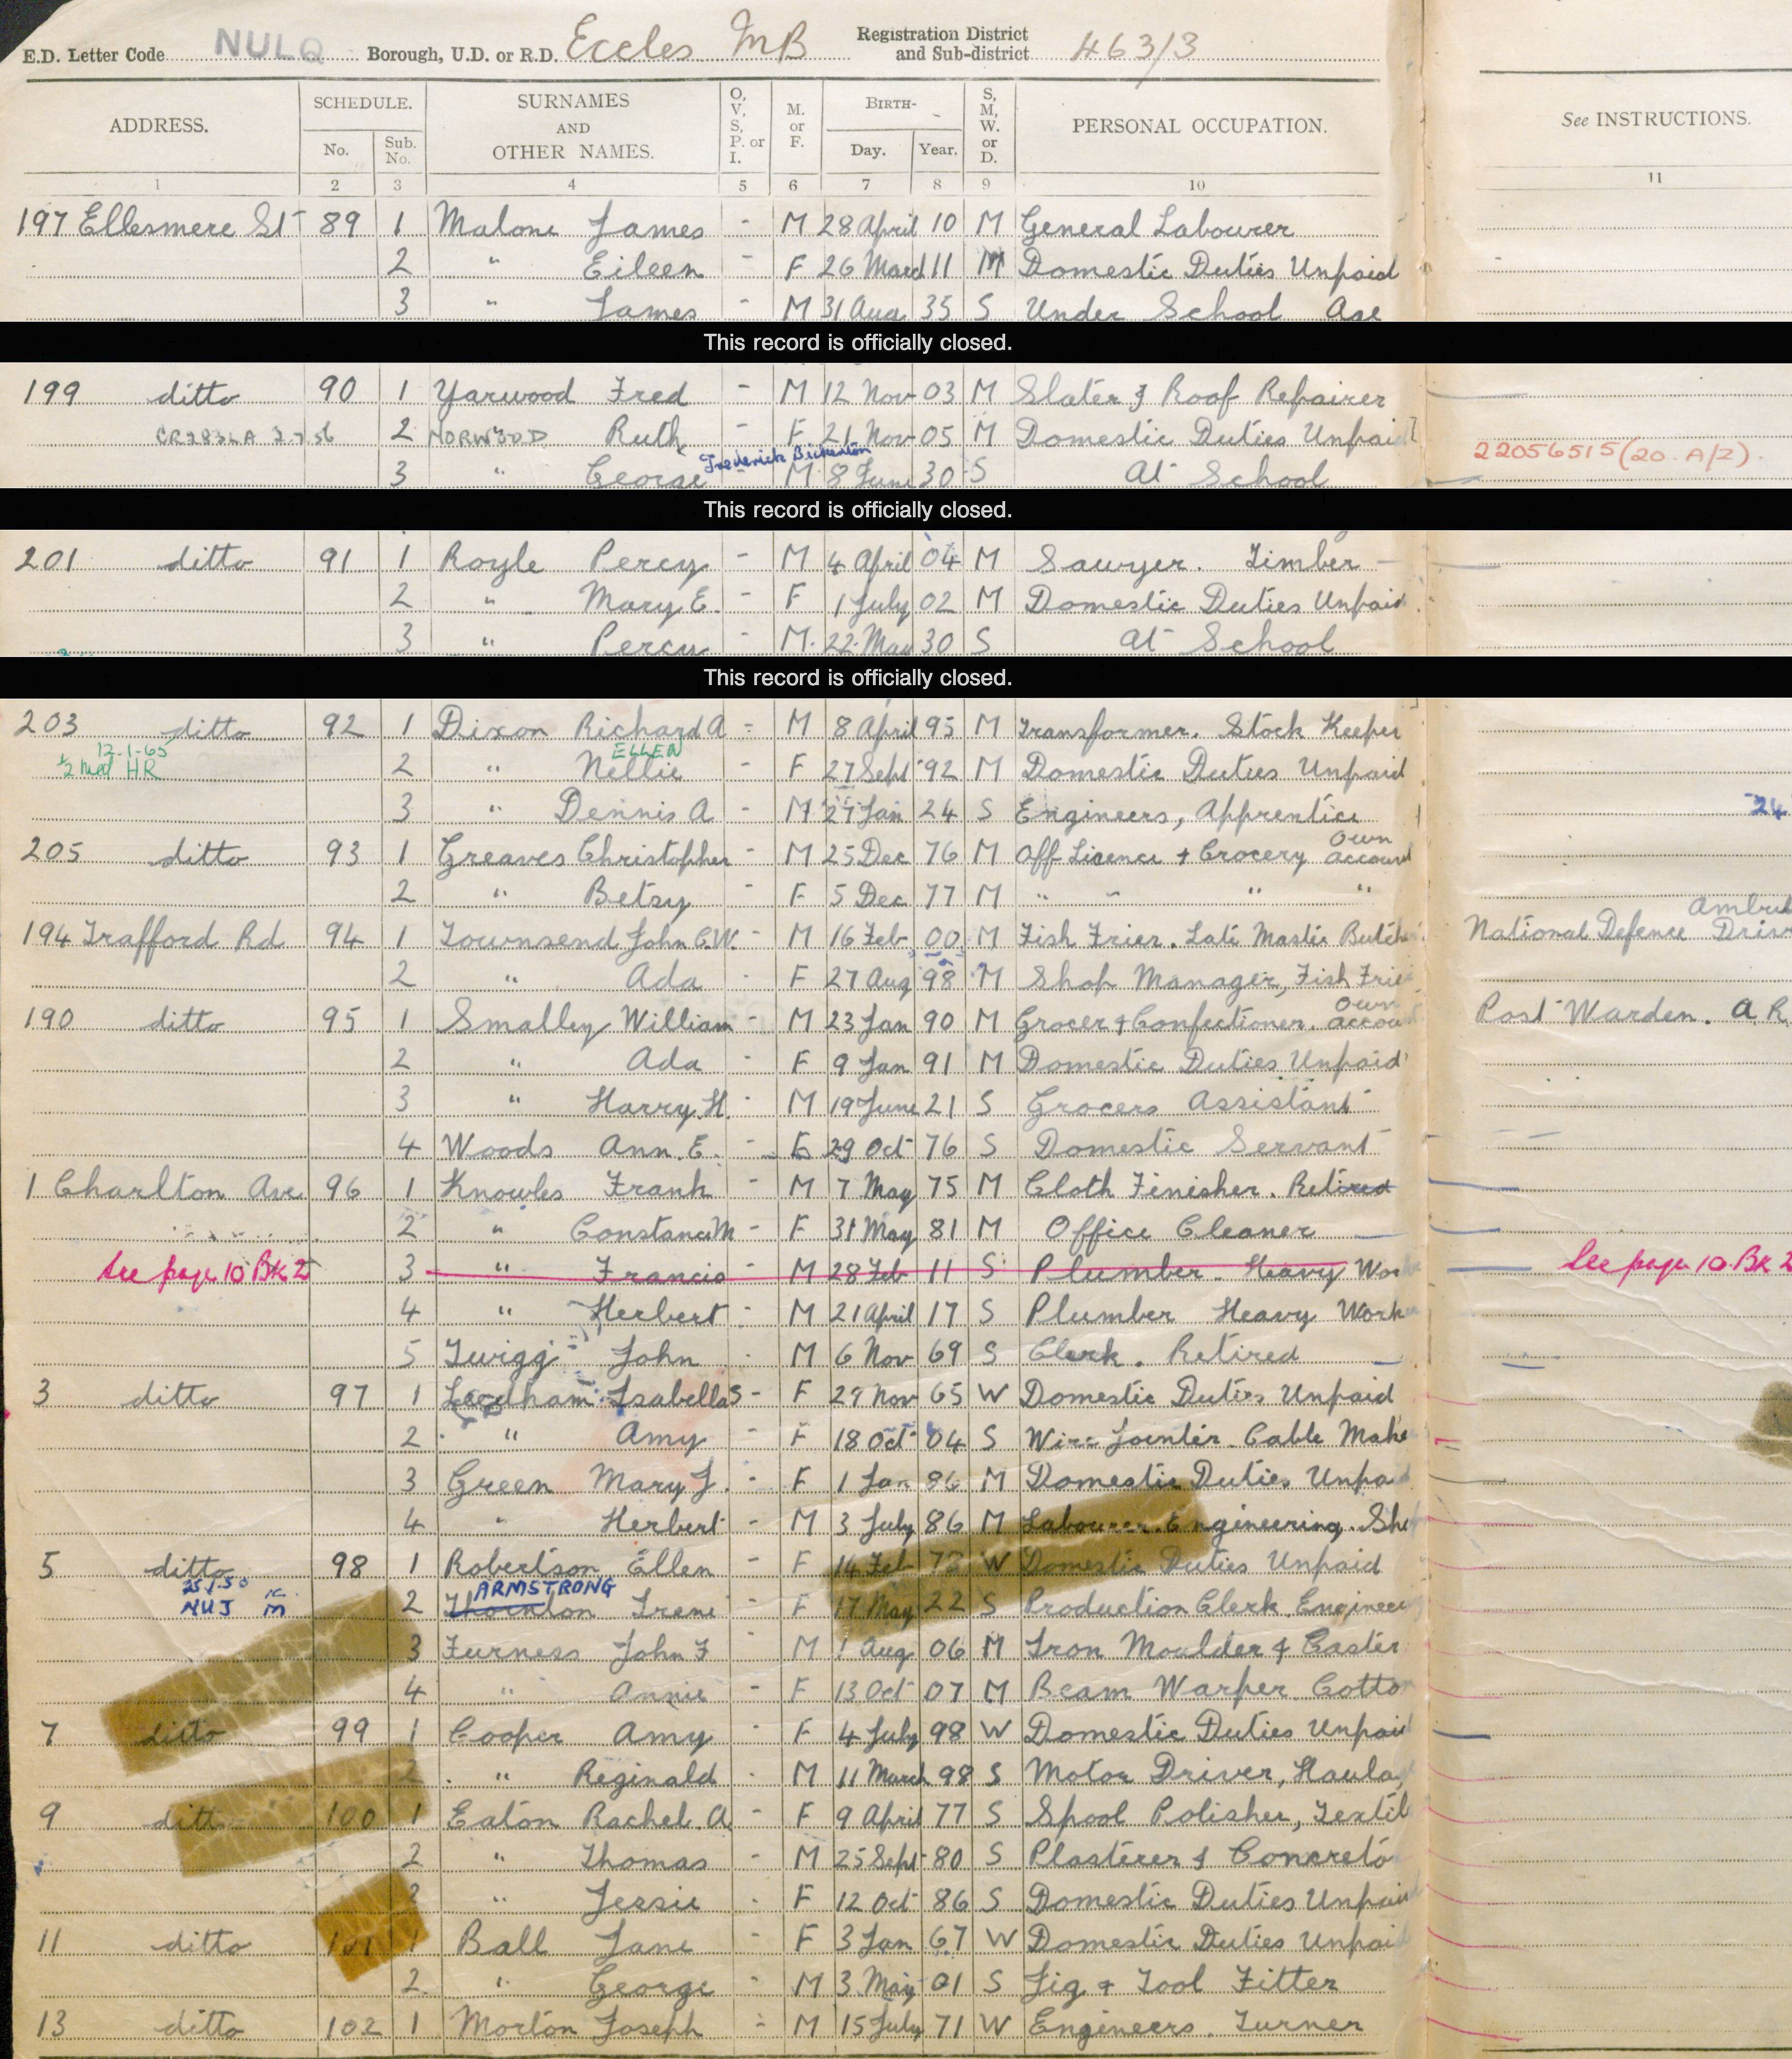 E.D. Letter Code NULQ Borough, U.D. or R.D. Eccles MB Registration District and Sub-district 463/3
ADDRESS. SCHEDULE. No. Sub. No. SURNAMES AND OTHER NAMES. O, V, S, P. or I. M. or F. BIRTH- Day. Year. S, M, W. or D. PERSONAL OCCUPATION. See INSTRUCTIONS.
1 2 3 4 5 6 7 8 9 10 11
197 Ellesmere St 89 1 Malone James - M 28 April 10 M General Labourer
2 " Eileen - F 26 March 11 M Domestic Duties Unpaid
3 " James - M 31 Aug 35 S Under School Age
This record is officially closed.
199 ditto 90 1 Yarwood Fred - M 12 Nov 03 M Slater & Roof Repairer
2 NORWOOD Ruth - F 21 Nov 05 M Domestic Duties Unpaid 22056515 (20. A/Z).
Frederick Bickerton
3 " George - M 8 June 30 S At School
This record is officially closed.
201 ditto 91 1 Royle Percy - M 4 April 04 M Sawyer. Timber
2 " Mary E. - F 1 July 02 M Domestic Duties Unpaid
3 " Percy - M 22 May 30 S At School
This record is officially closed.
203 ditto 92 1 Dixon Richard A - M 8 April 95 M Transformer. Stock Keeper
12-1-65 ELLEN
HR 2 " Nellie - F 27 Sept 92 M Domestic Duties Unpaid
3 " Dennis A - M 27 Jan 24 S Engineers, Apprentice 24
205 ditto 93 1 Greaves Christopher - M 25 Dec 76 M Off Licence + Grocery Own account
2 " Betsy - F 5 Dec 77 M " " " "
194 Trafford Rd 94 1 Townsend John C.W. - M 16 Feb 00 M Fish Frier. Late Master Butcher National Defence
2 " Ada - F 27 Aug 98 M Shop Manager, Fish Frie
190 ditto 95 1 Smalley William - M 23 Jan 90 M Grocer & Confectioner. Own account Post Warden. A.R.
2 " Ada - F 9 Jan 91 M Domestic Duties Unpaid
3 " Harry H. - M 19 June 21 S Grocers Assistant
4 Woods Ann. E. - F 29 Oct 76 S Domestic Servant
1 Charlton Ave 96 1 Knowles Frank - M 7 May 75 M Cloth Finisher. Retired
2 " Constance M - F 31 May 81 M Office Cleaner
See page 10 Bk 2 3 " Francis M 28 Feb 11 S Plumber. Heavy Wor See page 10 Bk 2
4 " Herbert - M 21 April 17 S Plumber Heavy Work
5 Twigg John - M 6 Nov 69 S Clerk. Retired
3 ditto 97 1 Leedham Isabella S - F 29 Nov 65 W Domestic Duties Unpaid
2 " Amy - F 18 Oct 04 S Wire Jointer. Cable Make
3 Green Mary J. - F 1 Jan 86 M Domestic Duties Unpaid
4 " Herbert - M 3 July 86 M Labourer. Engineering. She
5 ditto 98 1 Robertson Ellen - F 14 Feb 73 W Domestic Duties Unpaid
ARMSTRONG
NUJ 2 Thornton Irene - F 17 May 22 S Production Clerk. Engineer
3 Furness John F - M 1 Aug 06 M Iron Moulder & Caster
4 " Annie - F 13 Oct 07 M Beam Warper. Cotto
7 ditto 99 1 Cooper Amy - F 4 July 98 W Domestic Duties Unpaid
2 " Reginald - M 11 March 98 S Motor Driver, Haulag
9 ditto 100 1 Eaton Rachel. A - F 9 April 77 S Spool Polisher, Textil
2 " Thomas - M 25 Sept 80 S Plasterer & Concreto
" Jessie - F 12 Oct 86 S Domestic Duties Unpaid
11 ditto 101 1 Ball Jane - F 3 Jan 67 W Domestic Duties Unpaid
2 " George - M 3 May 01 S Jig & Tool Fitter
13 ditto 102 1 Morton Joseph - M 15 July 71 W Engineers. Turner